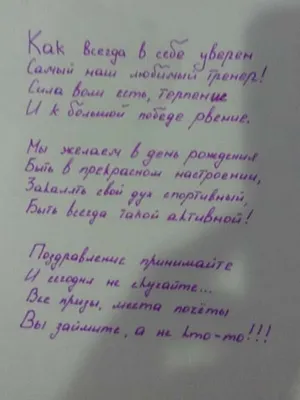 Как всегда в себе уверен
Самый наш любимый тренер!
Сила воли есть, терпение
И к большой победе рвение.
Мы желаем в день рождения
Быть в прекрасном настроении,
Закалять свой дух спортивный,
Быть всегда такой активной!
Поздравление принимайте
И сегодня не скучайте...
Все призы, места почёты
Вы займите, а не кто-то!!!